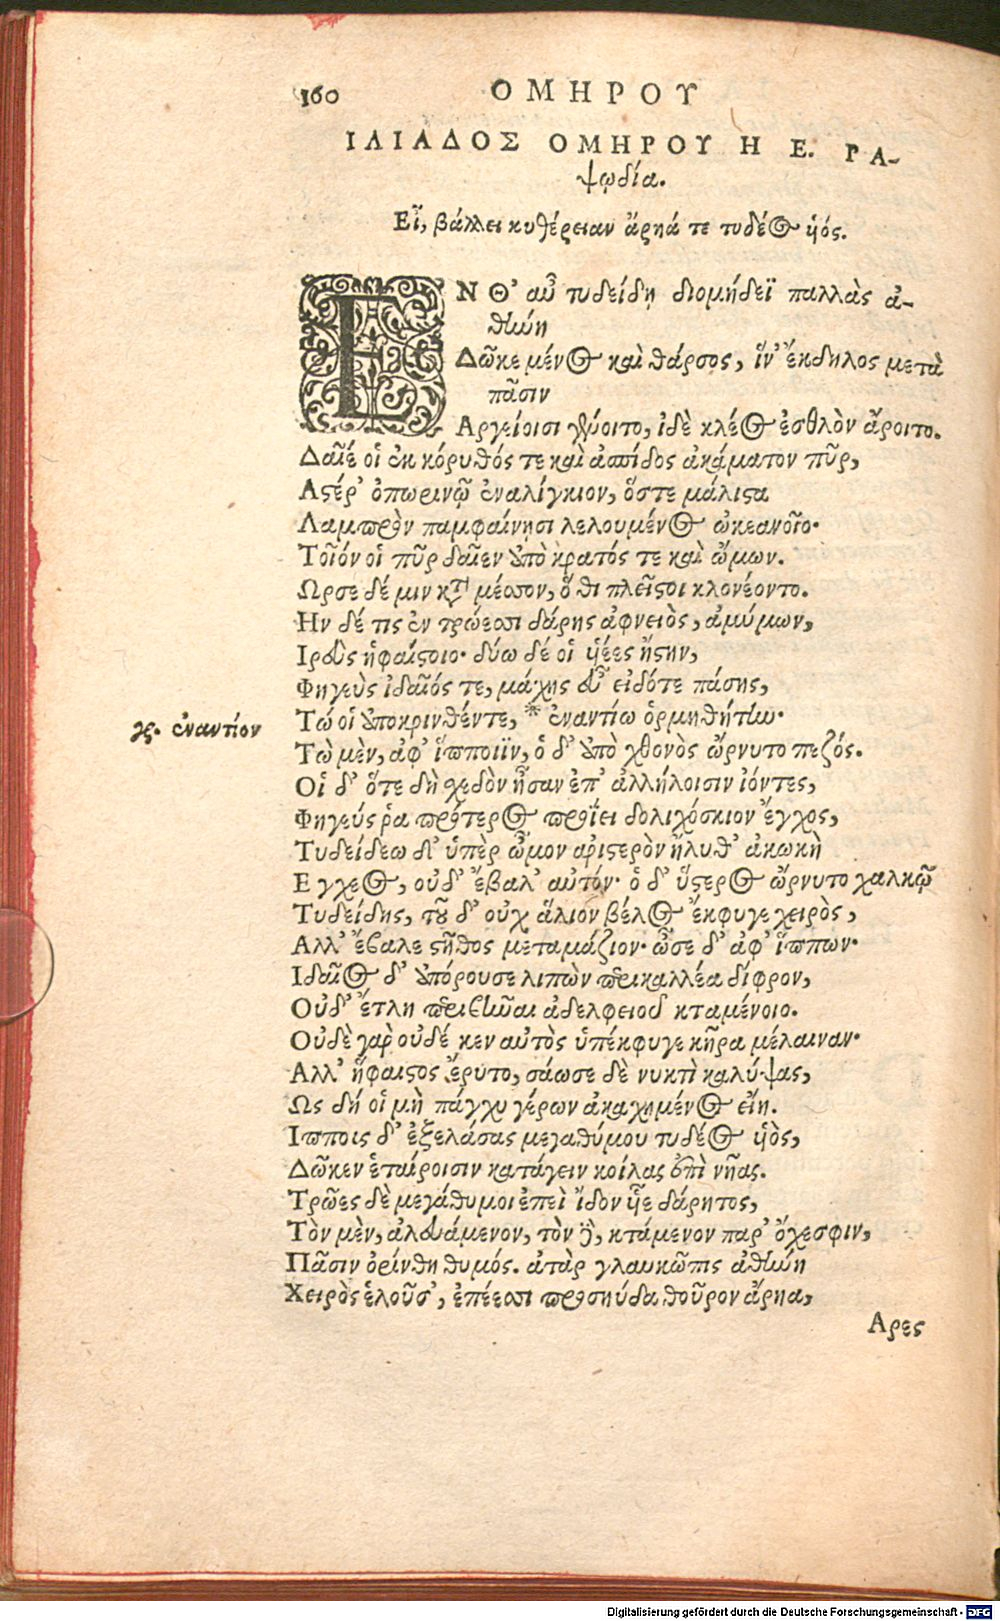 160 ΟΜΗΡΟΥ
ΙΛΙΑΔΟΣ ΟΜΗΡΟΥ Η Ε. ΡΑ-
ψῳδία.
Εἶ, βάλλει κυθέρειαν ἄρηά τε τυδέος ὑιός.
ΕΝ Θ' αὖ τυδείδῃ διομήδεϊ παλλὰς ἀ-
θήνη
Δῶκε μένος καὶ θάρσος, ἵν' ἔκδηλος μετὰ
πᾶσιν
Αργείοισι γένοιτο, ἰδὲ κλέος ἐσθλὸν ἄροιτο.
Δαῖέ οἱ ἐκ κόρυθός τε καὶ ἀσπίδος ἀκάματον πῦρ,
Αστέρ' ὀπωρινῷ ἐναλίγκιον, ὅστε μάλιστα
Λαμπρὸν παμφαίνησι λελουμένος ὠκεανοῖο·
Τοῖόν οἱ πῦρ δαῖεν ὑπὸ κρατός τε καὶ ὤμων.
Ωρσε δέ μιν κατὰ μέσσον, ὅθι πλεῖστοι κλονέοντο.
Ην δέ τις ἐν τρώεσσι δάρης ἀφνειὸς, ἀμύμων,
Ιρεὺς ἡφαίστοιο· δύω δέ οἱ ὑιέες ἤστην,
Φηγεὺς ἰδαῖός τε, μάχης εὖ εἰδότε πάσης,
Τώ οἱ ὑποκρινθέντε, * ἐναντίω ὁρμηθήτην·
γρ. ἐναντίον
Τὼ μὲν, ἀφ' ἵπποιϊν, ὁ δ' ὑπὸ χθονὸς ὤρνυτο πεζός.
Οἱ δ' ὅτε δὴ σχεδὸν ἦσαν ἐπ' ἀλλήλοισιν ἰόντες,
Φηγεύς ῥα πρότερος προΐει δολιχόσκιον ἔγχος,
Τυδείδεω δ' ὑπὲρ ὦμον ἀριστερὸν ἤλυθ' ἀκωκὴ
Εγχεος, οὐδ' ἔβαλ' αὐτόν· ὁ δ' ὕστερος ὤρνυτο χαλκῷ
Τυδείδης, τοῦ δ' οὐχ ἅλιον βέλος ἔκφυγε χειρὸς,
Αλλ' ἔβαλε στῆθος μεταμάζιον· ὦσε δ' ἀφ' ἵππων·
Ιδαῖος δ' ὑπόρουσε λιπὼν περικαλλέα δίφρον,
Οὐδ' ἔτλη περιβῆναι ἀδελφειοῦ κταμένοιο.
Οὐδὲ γὰρ οὐδέ κεν αὐτὸς ὑπέκφυγε κῆρα μέλαιναν·
Αλλ' ἥφαιστος ἔρυτο, σάωσε δὲ νυκτὶ καλύψας,
Ως δή οἱ μὴ πάγχυ γέρων ἀκαχημένος εἴη.
Ἵπποις δ' ἐξελάσας μεγαθύμου τυδέος ὑιὸς,
Δῶκεν ἑταίροισιν κατάγειν κοίλας ἐπὶ νῆας.
Τρῶες δὲ μεγάθυμοι ἐπεὶ ἴδον ὗιε δάρητος,
Τὸν μὲν, ἀλευάμενον, τὸν δὲ, κτάμενον παρ' ὄχεσφιν,
Πᾶσιν ὀρίνθη θυμός. ἀτὰρ γλαυκῶπις ἀθήνη
Χειρὸς ἑλοῦσ', ἐπέεσσι προσηύδα θοῦρον ἄρηα,
Αρες
Digitalisierung gefördert durch die Deutsche Forschungsgemeinschaft - DFG